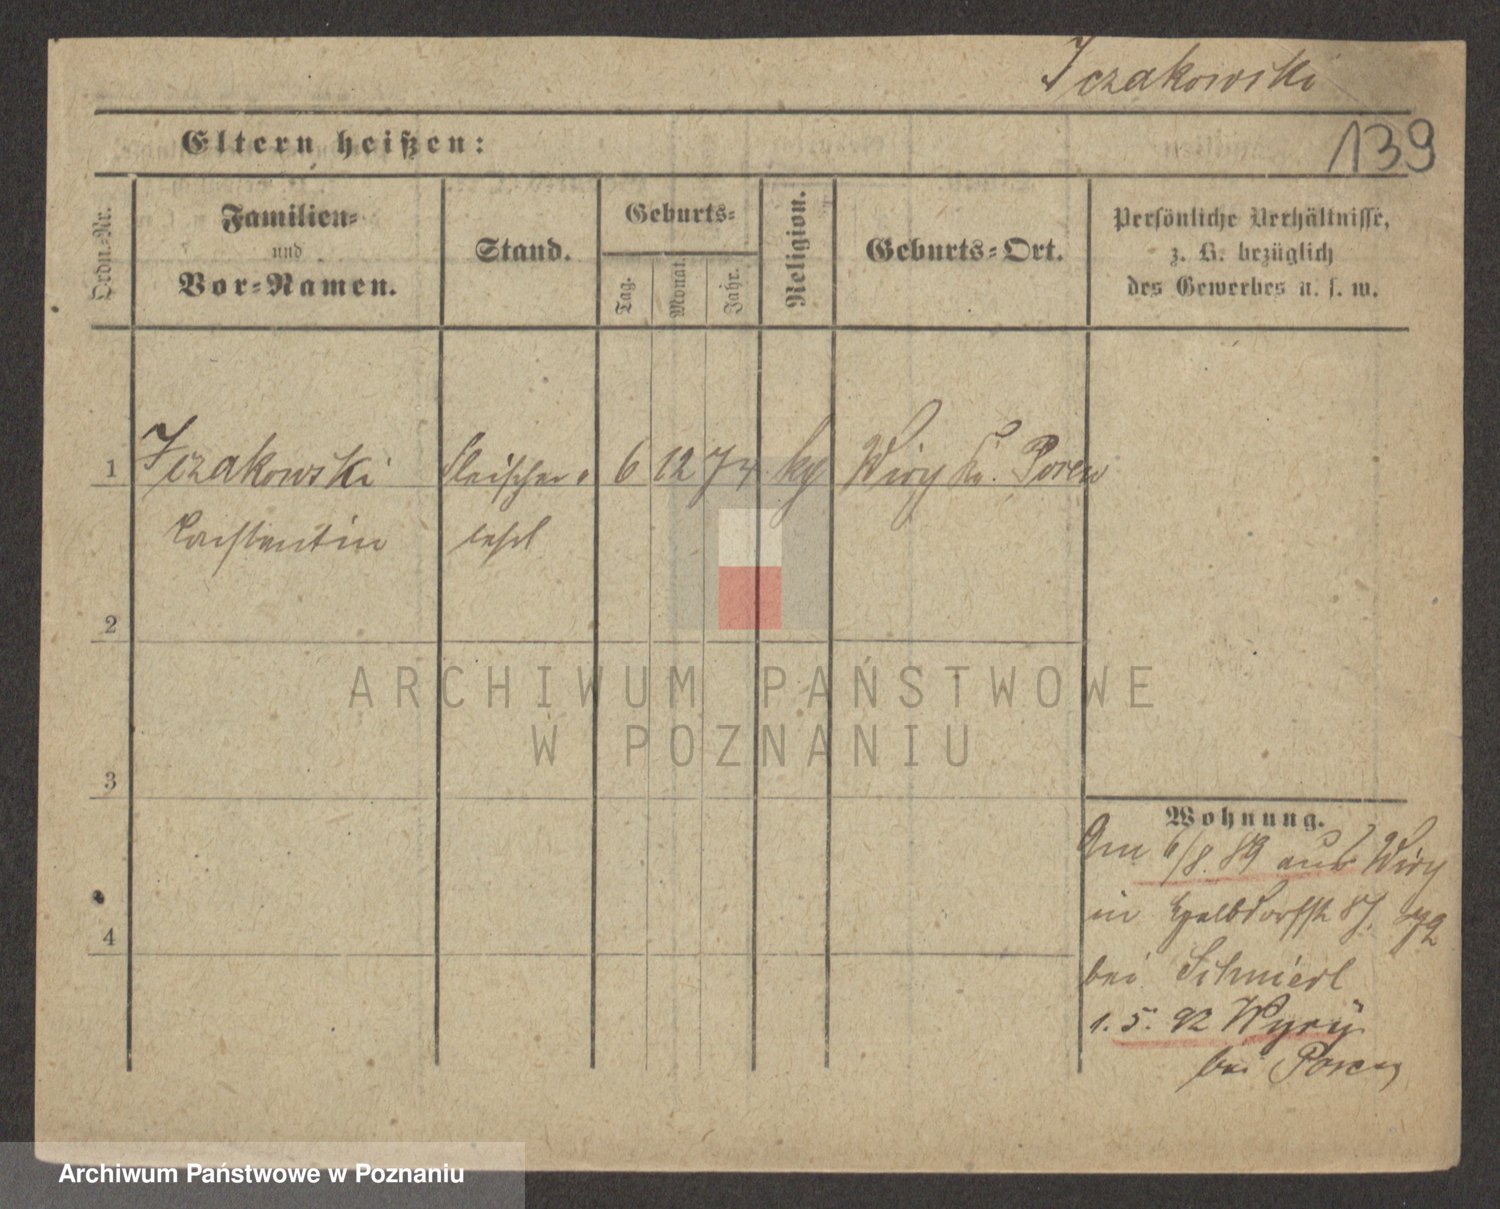 Iczakowski
139
Eltern heißen:
Ordn.-Nr.
Familien-
und
Vor-Namen.
Stand.
Geburts-
Tag.
Monat.
Jahr.
Religion.
Geburts-Ort.
Persönliche Verhältnisse,
z. B. bezüglich
des Gewerbes u. s. w.
1 Iczakowski Fleischer- 6 12 74 kg Wiry Kr. Posen
Constantin lehrl
2
ARCHIWUM PAŃSTWOWE
W POZNANIU
3
Wohnung.
Am 6/8. 89 aus Wiry
in Halbdorfstr
4
bei
1. 5. 92 Wyry
bei Posen
Archiwum Państwowe w Poznaniu